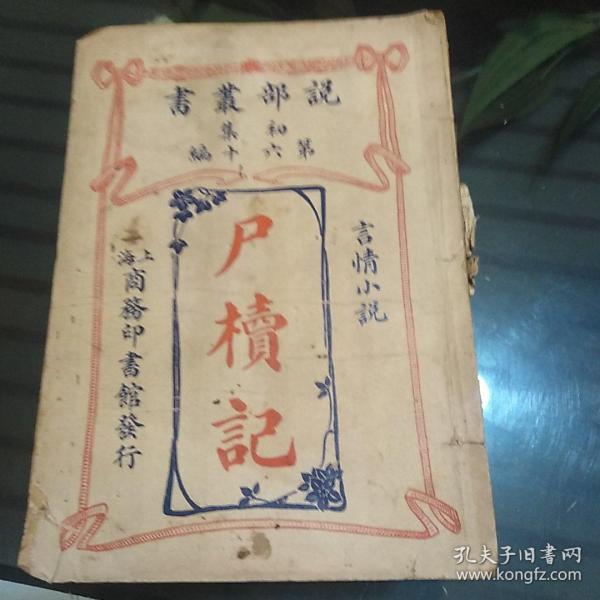 說部叢書
初集
第六十編
言情小説
尸櫝記
上海商務印書館發行
孔夫子旧书网
www.kongfz.com